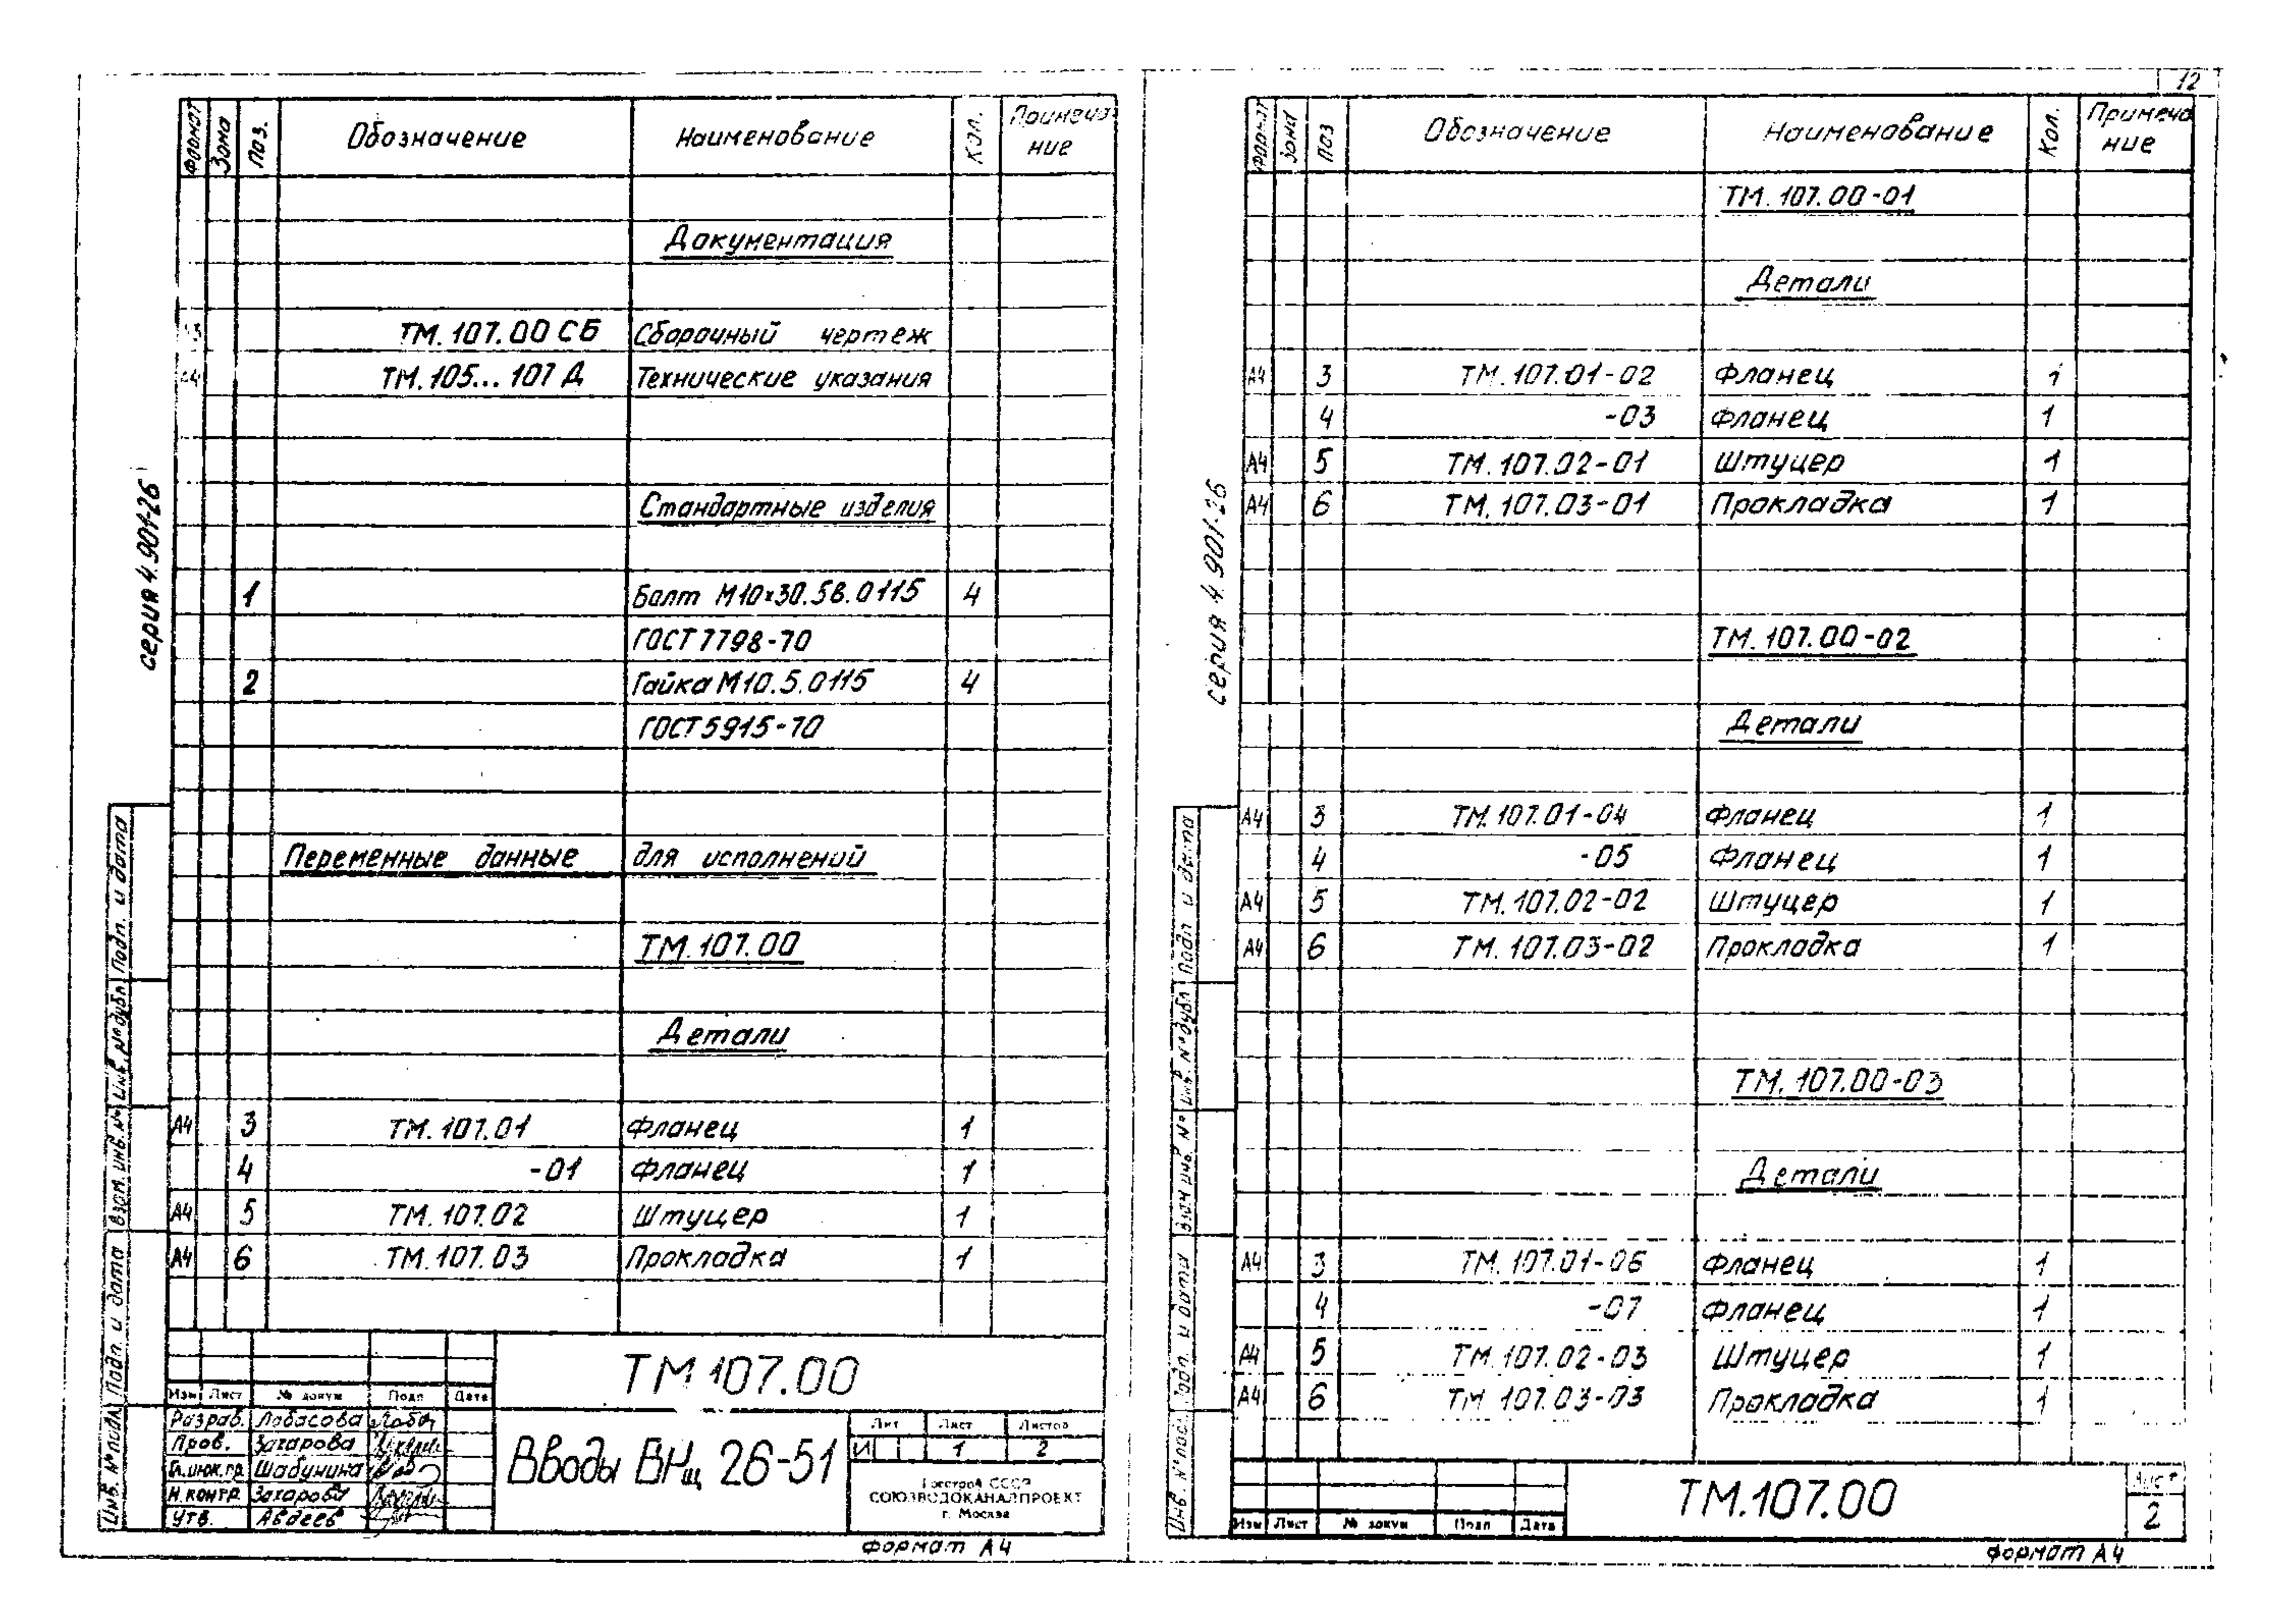 12
Формат Зона Поз. Обозначение Наименование Кол. Примеча
ние
Документация
ТМ.107.00 СБ Сборочный чертеж
ТМ.105...107 Д Технические указания
Стандартные изделия
1 Болт М10×30.58.0115 4
ГОСТ 7798-70
2 Гайка М10.5.0115 4
ГОСТ 5915-70
Переменные данные для исполнений
ТМ.107.00
Детали
А4 3 ТМ.107.01 Фланец 1
4 -01 Фланец 1
А4 5 ТМ.107.02 Штуцер 1
А4 6 ТМ.107.03 Прокладка 1
серия 4.901-26
Подп. и дата
Инв. № дубл
Взам. инв. №
Подп. и дата
Инв. № подл.
ТМ 107.00
Изм Лист № докум Подп Дата
Разраб. Лобасова
Пров. Захарова
Гл.инж.пр. Шабунина
Н.контр. Захарова
Утв. Авдеев
Вводы ВНщ 26-51
Лит Лист Листов
И 1 2
Госстрой СССР
СОЮЗВОДОКАНАЛПРОЕКТ
г. Москва
Формат А4
Формат Зона Поз Обозначение Наименование Кол. Примеча
ние
ТМ.107.00-01
Детали
А4 3 ТМ.107.01-02 Фланец 1
4 -03 Фланец 1
А4 5 ТМ.107.02-01 Штуцер 1
А4 6 ТМ.107.03-01 Прокладка 1
ТМ.107.00-02
Детали
А4 3 ТМ.107.01-04 Фланец 1
4 -05 Фланец 1
А4 5 ТМ.107.02-02 Штуцер 1
А4 6 ТМ.107.03-02 Прокладка 1
ТМ.107.00-03
Детали
А4 3 ТМ.107.01-06 Фланец 1
4 -07 Фланец 1
А4 5 ТМ.107.02-03 Штуцер 1
А4 6 ТМ 107.03-03 Прокладка 1
серия 4.901-26
Подп и дата
Инв. № дубл
Взам инв. №
Подп. и дата
Инв. № подл.
Изм Лист № докум Подп Дата
ТМ.107.00
Лист
2
Формат А4